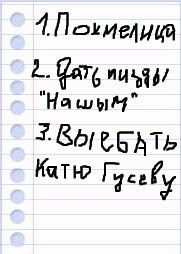 1. Похмелица
2. Дать пизды
"Нашым"
3. ВЫЕБАТЬ
Катю Гусеву